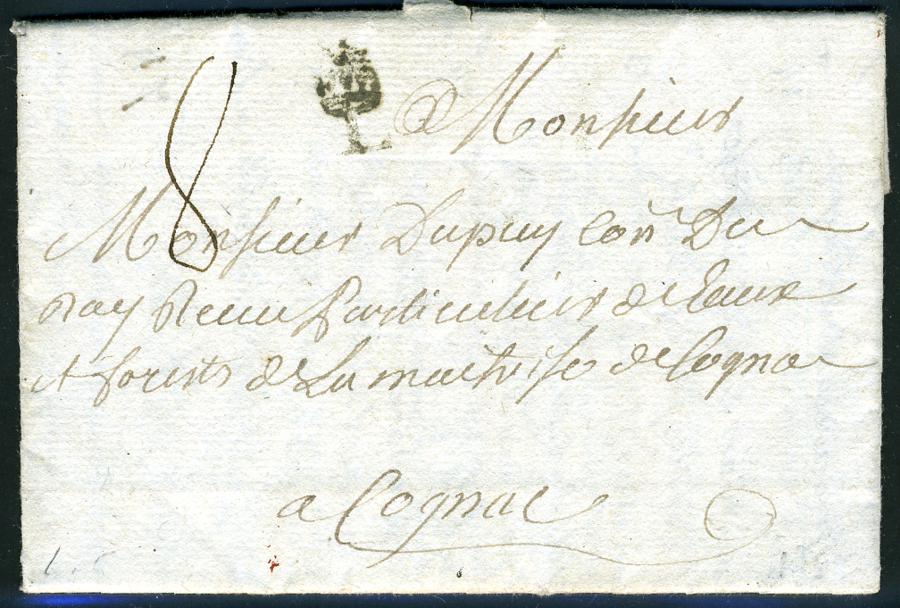 8
L
a Monsieur
Monsieur Dupuy Con Du
Roy Receu Particulier de Eaux
et forests de La maitrise de Cognac
a Cognac